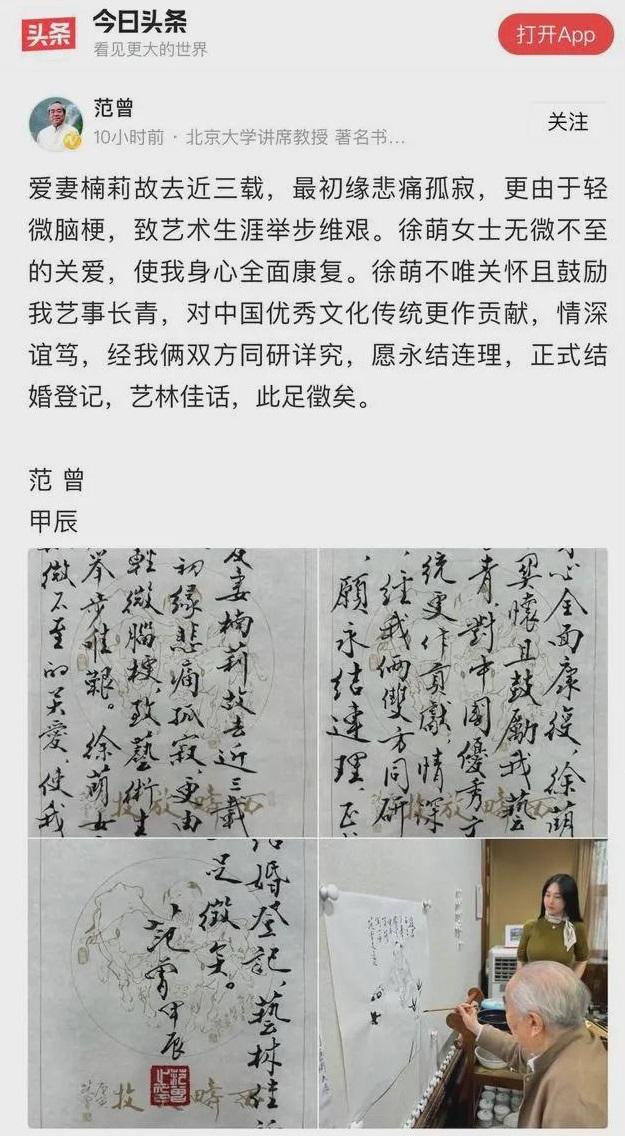 头条
今日头条
看见更大的世界
打开App
范曾
10小时前 · 北京大学讲席教授 著名书...
关注
爱妻楠莉故去近三载，最初缘悲痛孤寂，更由于轻
微脑梗，致艺术生涯举步维艰。徐萌女士无微不至
的关爱，使我身心全面康复。徐萌不唯关怀且鼓励
我艺事长青，对中国优秀文化传统更作贡献，情深
谊笃，经我俩双方同研详究，愿永结连理，正式结
婚登记，艺林佳话，此足徵矣。
范 曾
甲辰
爱妻楠莉故去近三载
初缘悲痛孤寂，更由
輕微腦梗，致藝術生
举步维艱。徐萌女
微不至的关愛，使我
心全面康復，徐萌
关懷且鼓勵我藝
青，對中國優秀文
統更作貢獻，情深
，經我俩雙方同研
，願永结連理，正
结婚登記，藝林佳话
足徵矣。
范曾甲辰